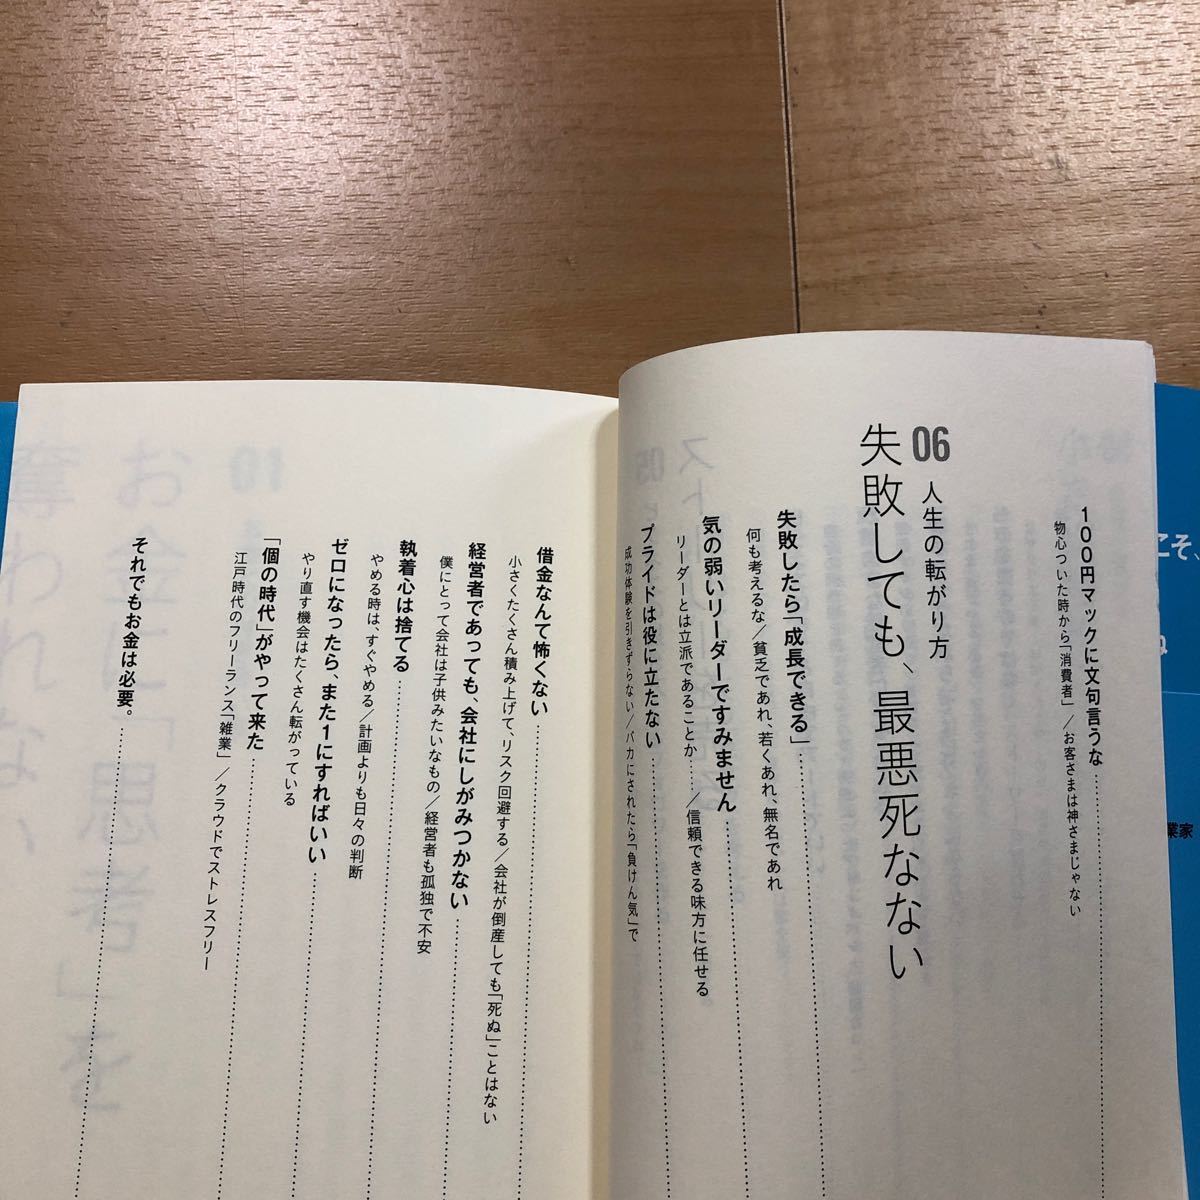 100円マックに文句言うな
物心ついた時から「消費者」/お客さまは神さまじゃない
06 人生の転がり方
失敗しても、最悪死なない
失敗したら「成長できる」
何も考えるな/貧乏であれ、若くあれ、無名であれ
気の弱いリーダーですみません
リーダーとは立派であることか……/信頼できる味方に任せる
プライドは役に立たない
成功体験を引きずらない/バカにされたら「負けん気」で
借金なんて怖くない
小さくたくさん積み上げて、リスク回避する/会社が倒産しても「死ぬ」ことはない
経営者であっても、会社にしがみつかない
僕にとって会社は子供みたいなもの/経営者も孤独で不安
執着心は捨てる
やめる時は、すぐやめる/計画よりも日々の判断
ゼロになったら、また1にすればいい
やり直す機会はたくさん転がっている
「個の時代」がやって来た
江戸時代のフリーランス「雑業」/クラウドでストレスフリー
それでもお金は必要。
こそ、
業家